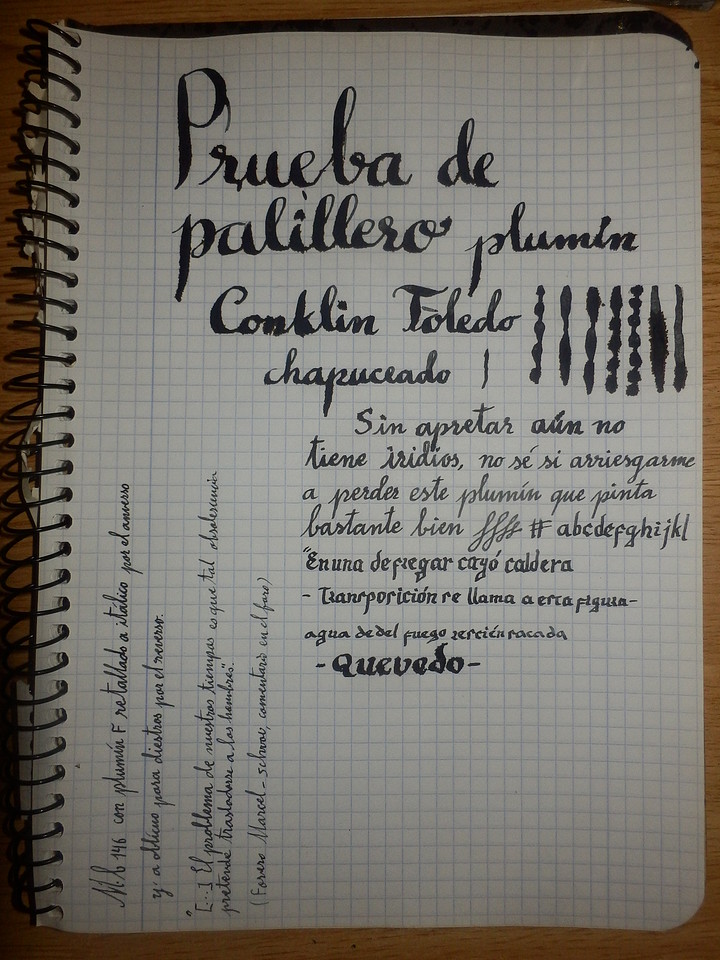 Prueba de
palillero plumín
Conklin Toledo
chapuceado
Sin apretar aún no
tiene iridios, no sé si arriesgarme
a perder este plumín que pinta
bastante bien ffff # abcdefghijkl
"En una de fregar cayó caldera
- Transposición se llama a esta figura -
agua de del fuego recién sacada
- Quevedo -
M.b 146 con plumín F retallado a itálico por el anverso
y a oblicuo para diestros por el reverso.
"[...] El problema de nuestros tiempos es que tal obsolescencia
pretende trasladarse a los hombres".
(Forero Marcel - comentario en el foro)